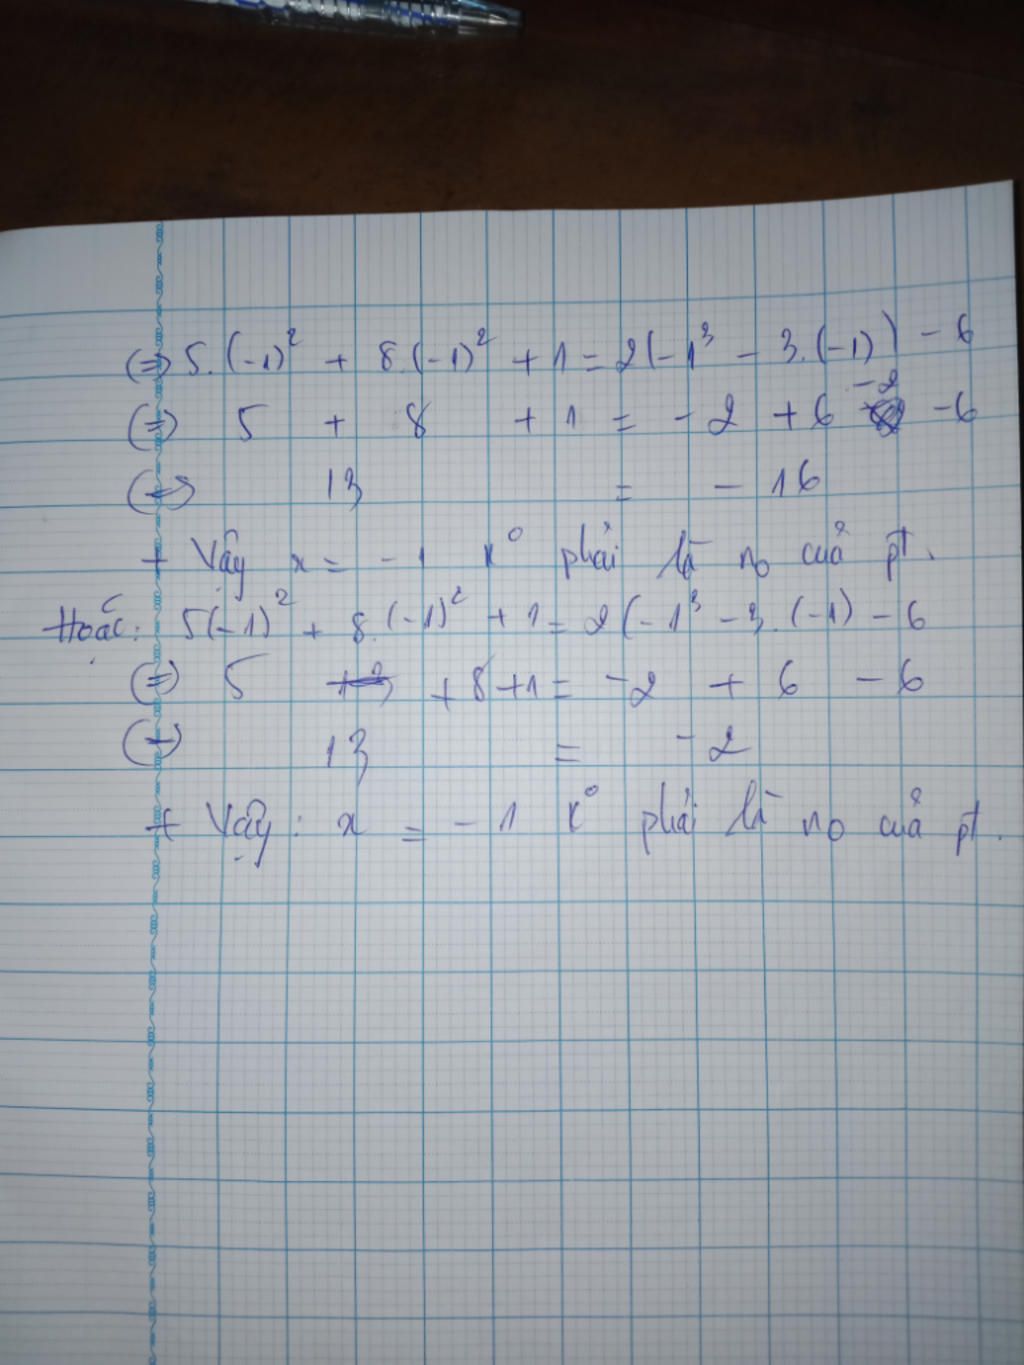 (=) 5.(-1)² + 8.(-1)² + 1 = 2(-1³ - 3.(-1)) - 6
(=) 5 + 8 + 1 = - 2 + 6 -2 - 6
(=) 13 = - 16
+ Vậy x = - 1 k° phải là no của pt.
Hoặc: 5(-1)² + 8.(-1)² + 1 = 2(-1³ - 3.(-1) - 6
(=) 5 + 8 + 1 = -2 + 6 - 6
(=) 13 = - 2
+ Vậy: x = - 1 k° phải là no của pt.